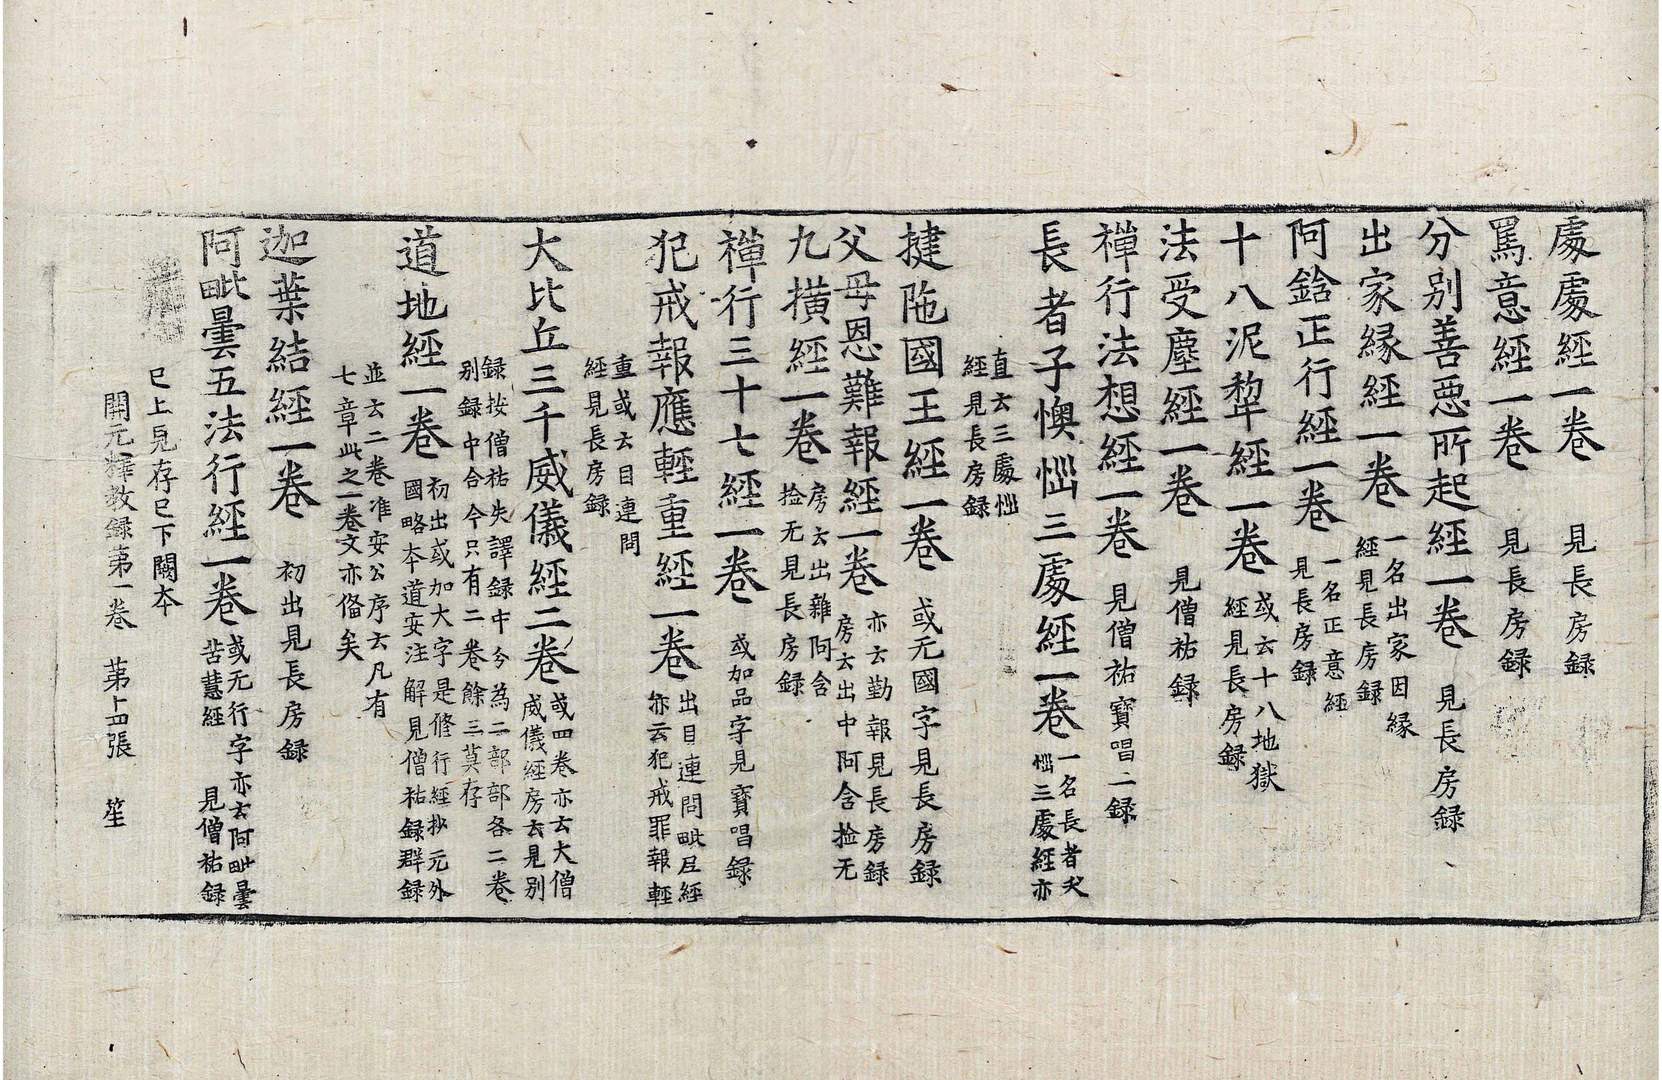 處處經一卷 見長房録
罵意經一卷 見長房録
分别善惡所起經一卷 見長房録
出家緣經一卷 一名出家因緣
經見長房録
阿鋡正行經一卷 一名正意經
見長房録
十八泥犂經一卷 或云十八地獄
經見長房録
法受塵經一卷 見僧祐録
禪行法想經一卷 見僧祐寶唱二録
長者子懊惱三處經一卷 一名長者夭
惱三處經亦
直云三處惱
經見長房録
揵陁國王經一卷 或无國字見長房録
父母恩難報經一卷 亦云勤報見長房録
房云出中阿含捡无
九橫經一卷 房云出雜阿含
捡无見長房録
禪行三十七經一卷 或加品字見寶唱録
犯戒報應輕重經一卷 出目連問毗尼經
亦云犯戒罪報輕
重或云目連問
經見長房録
大比丘三千威儀經二卷 或四卷亦云大僧
威儀經房云見别
録按僧祐失譯録中今為二部部各二卷
别録中合今只有二卷餘三莫存
道地經一卷 初出或加大字是修行經抄元外
國略本道安注解見僧祐録群録
並云二卷准安公序云凡有
七章此之一卷文亦俻矣
迦葉結經一卷 初出見長房録
阿毗曇五法行經一卷 或无行字亦云阿毗曇
苦慧經 見僧祐録
已上見存已下闕本
開元釋教録第一卷 第十四張 笙